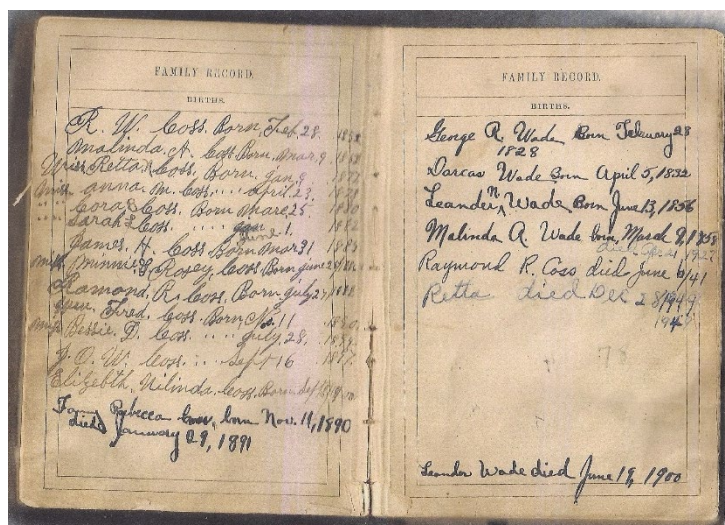 FAMILY RECORD.
BIRTHS.
R. W. Coss. Born, Feb. 28.
Malinda, A. Coss Born, Mar. 9. 1858
Miss Retta Coss, Born. Jan 9. 1877
Miss anna M. Coss, .... April. 23.
Cora Coss. Born Mar 25. 1880
Sarah L Coss June 1. 1882
James. H. Coss Born Mar 31
Miss Minnie Rosey, Coss Born June
Ramond. R. Coss. Born July 27 1888
Fred. Coss. Born, 11 1890
Miss Bessie. D. Coss. .... July, 28.
J. O. W. Coss. .... Sept 16 1897.
Elizebth, Nilinda, Coss. Born Sept
Rebecca born Nov. 11, 1890
died January 29, 1891
FAMILY RECORD.
BIRTHS.
George R. Wade Born Febuary 28
1828
Darcas Wade Born April 5, 1832
Leander N Wade Born June 13, 1856
Malinda A. Wade born, March 9, 1858
1927
Raymond R. Coss died June 6/41
Retta died Dec 28/1949
1949
78
Leander Wade died June 19, 1900